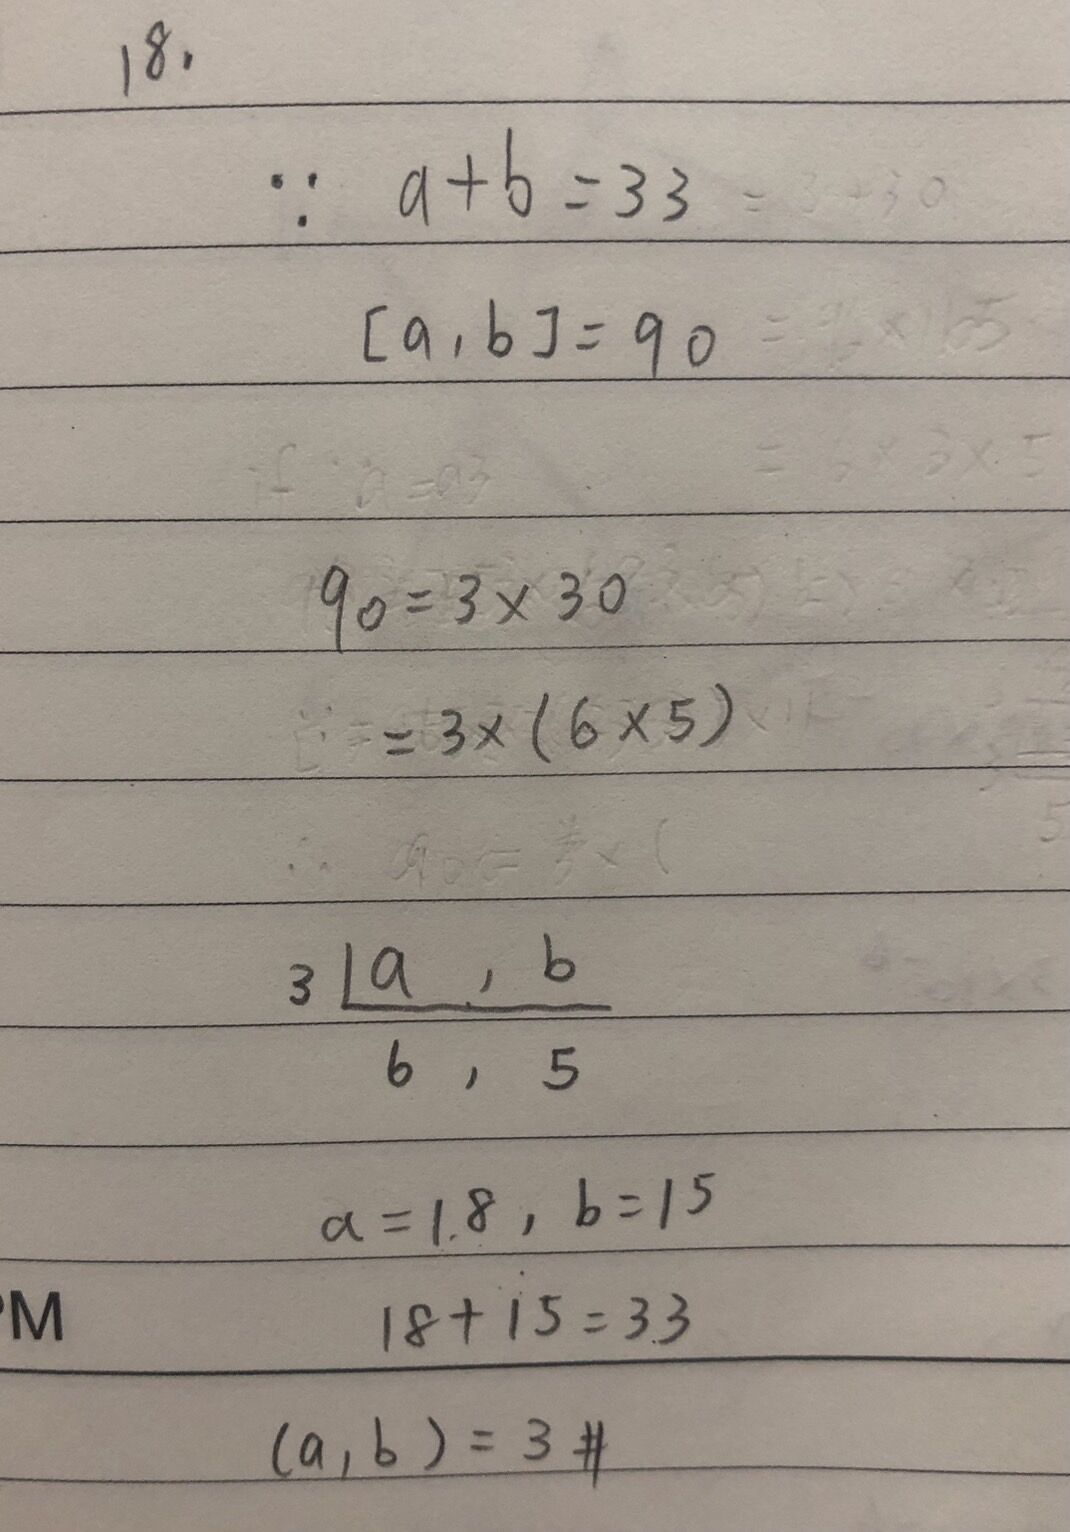 18.
∵ a+b=33
[a,b]=90
90=3×30
=3×(6×5)
3 a , b
6 , 5
a=18, b=15
PM 18+15=33
(a,b)=3#